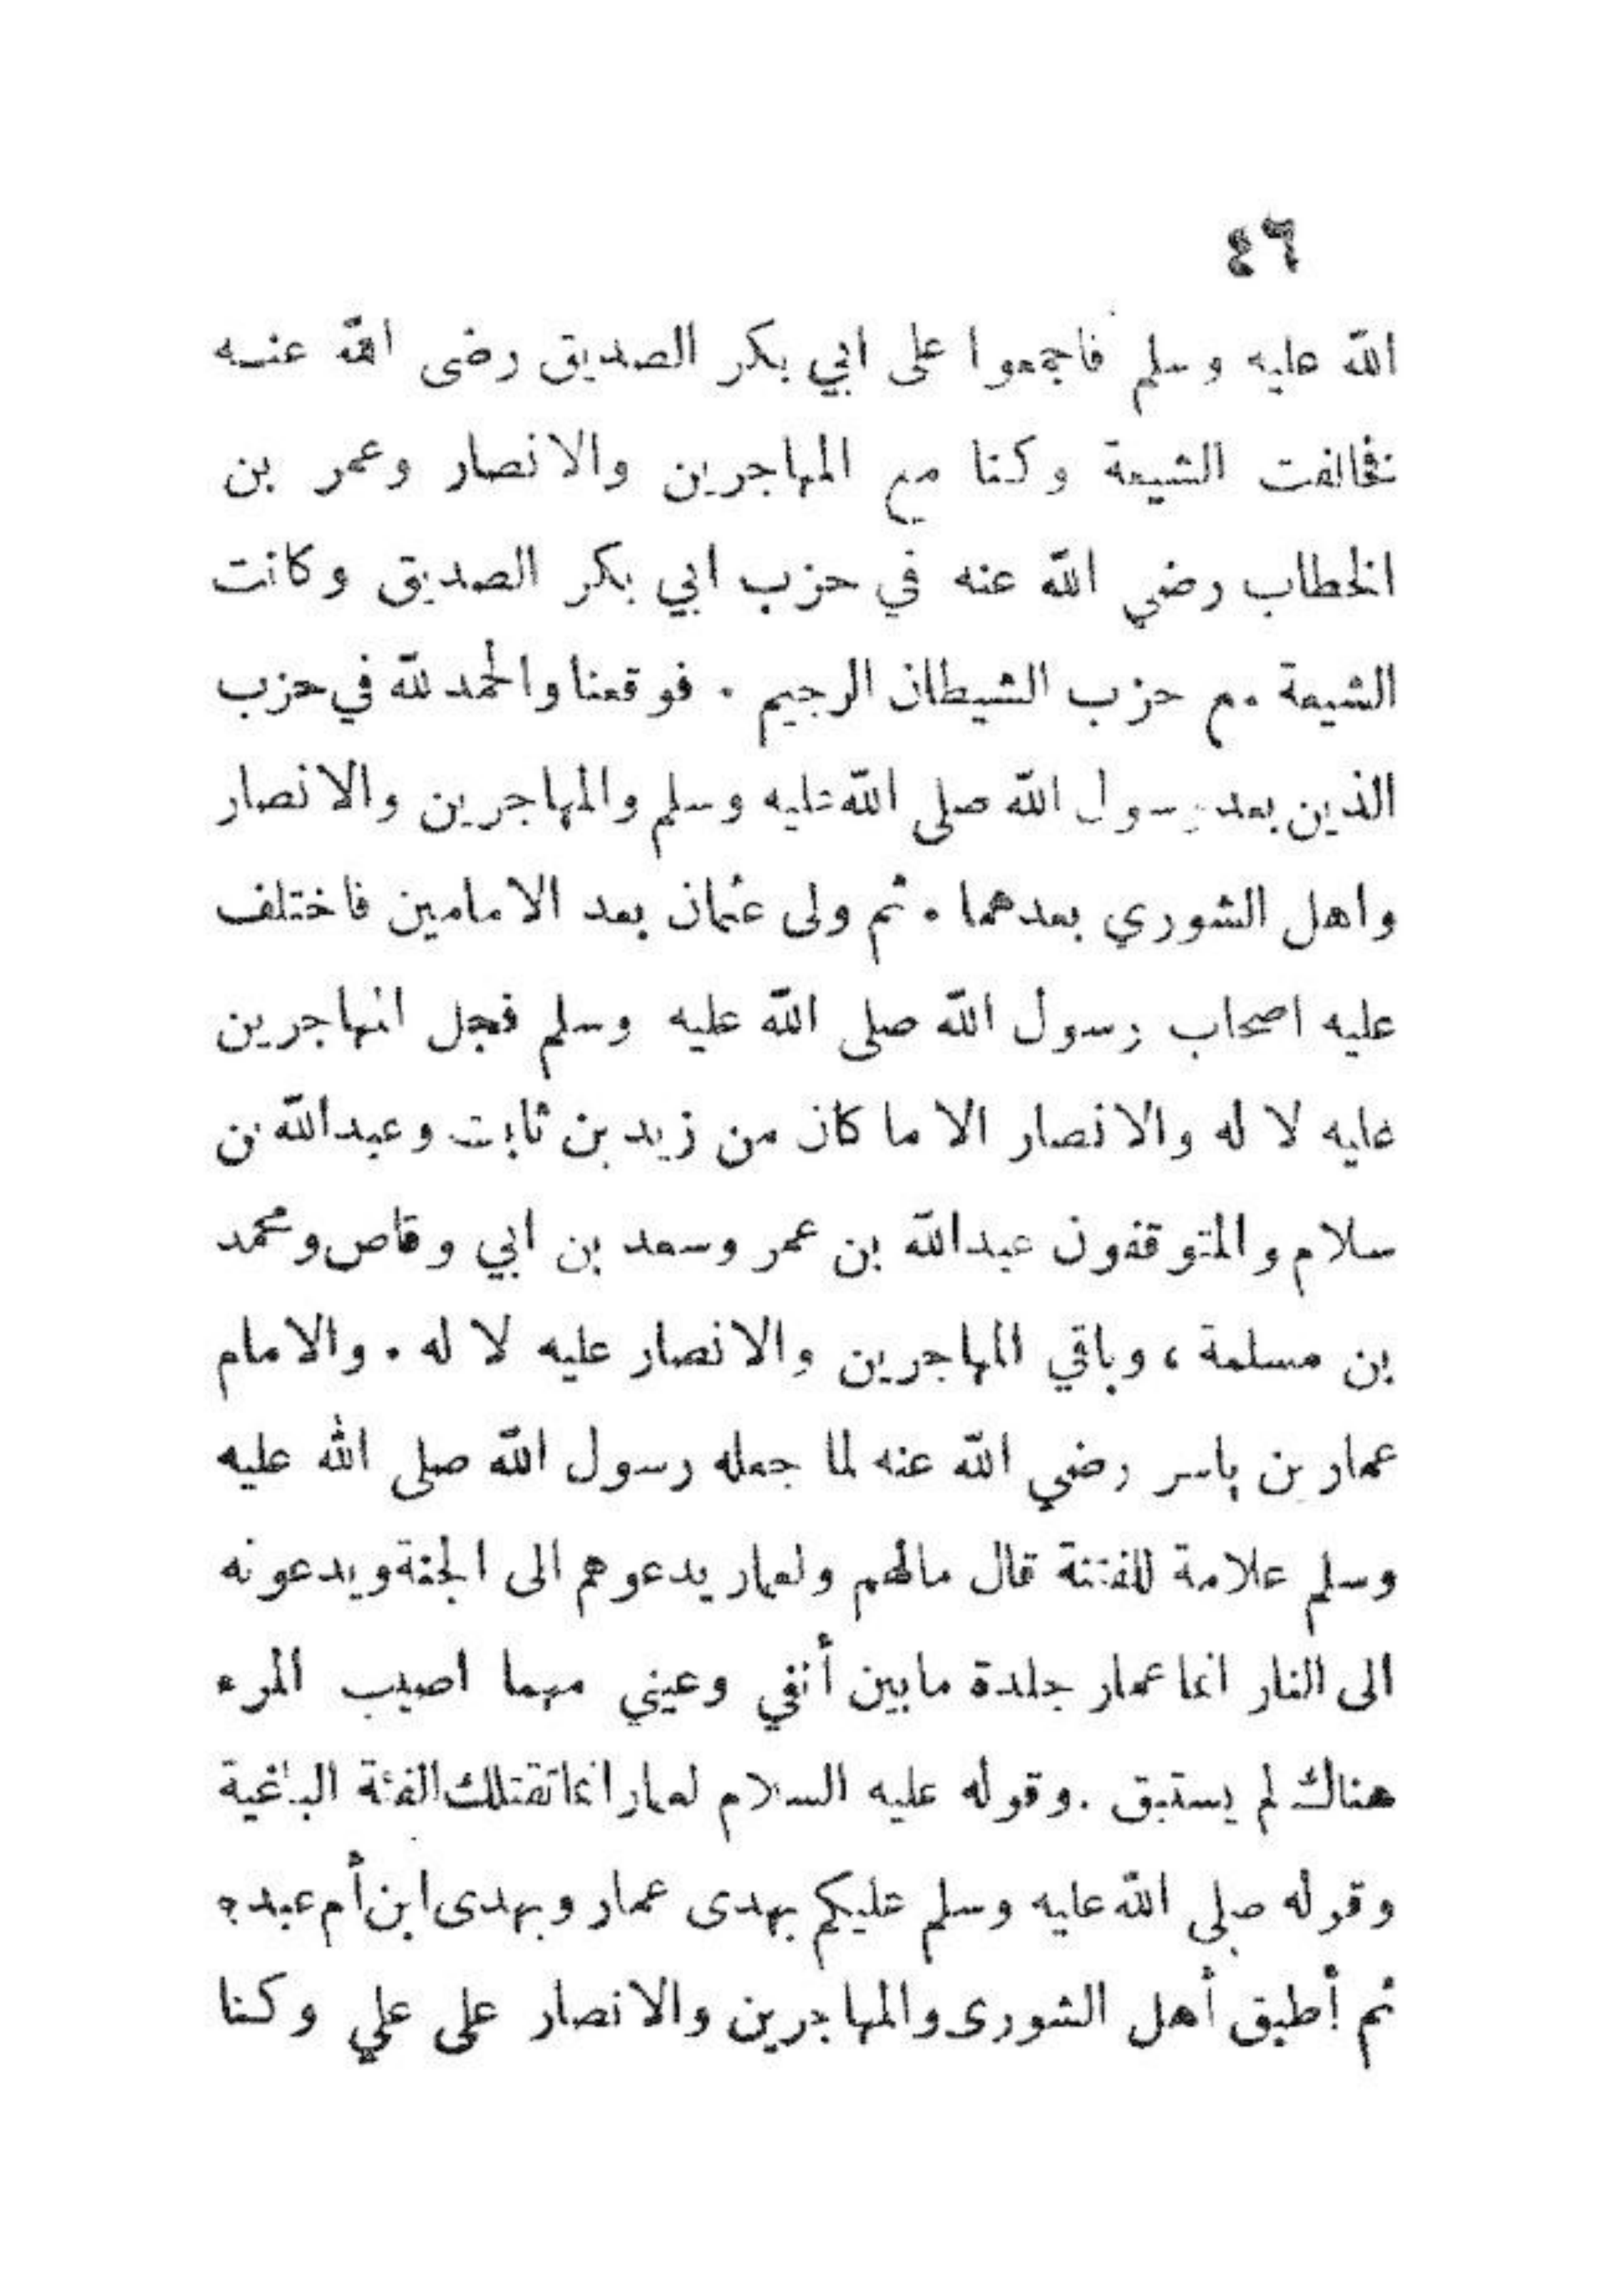 ٤٦
الله عليه وسلم فاجمعوا على ابي بكر الصديق رضى الله عنه
فخالفت الشيعة وكنا مع المهاجرين والانصار وعمر بن
الخطاب رضي الله عنه في حزب ابي بكر الصديق وكانت
الشيعة مع حزب الشيطان الرجيم . فوقعنا والحمد لله في حزب
الذين بعد رسول الله صلى الله عليه وسلم والمهاجرين والانصار
واهل الشوري بعدهما . ثم ولى عثمان بعد الامامين فاختلف
عليه اصحاب رسول الله صلى الله عليه وسلم فجل المهاجرين
عليه لا له والانصار الا ما كان من زيد بن ثابت وعبدالله بن
سلام والمتوقفون عبدالله بن عمر وسعد بن ابي وقاص ومحمد
بن مسلمة ، وباقي المهاجرين والانصار عليه لا له . والامام
عمار بن ياسر رضي الله عنه لما جعله رسول الله صلى الله عليه
وسلم علامة للفتنة قال مالهم ولعمار يدعوهم الى الجنة ويدعونه
الى النار انما عمار جلدة مابين أنفي وعيني مهما اصيب المرء
هناك لم يستبق . وقوله عليه السلام لعمار انما تقتلك الفئة الباغية
وقوله صلى الله عليه وسلم عليكم بهدى عمار وبهدى ابن أم عبد ؟
ثم أطبق أهل الشورى والمهاجرين والانصار على علي وكنا